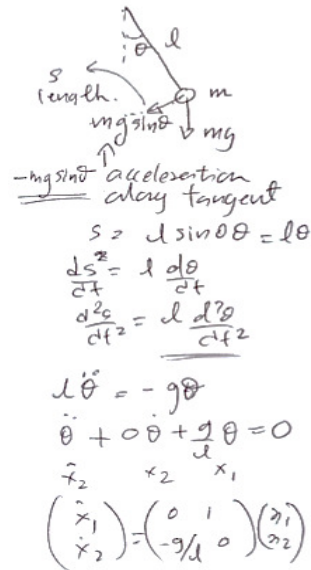 θ l
s
length.
m
mg sinθ
mg
-mg sinθ acceleration
along tangent
s = l sinθ θ = lθ
ds²/dt = l dθ/dt
d²s/dt² = l d²θ/dt²
lθ̈ = - gθ
θ̈ + 0θ̇ + g/l θ = 0
ẋ₂ x₂ x₁
(ẋ₁ ẋ₂) = (0 1 -g/l 0) (x₁ x₂)